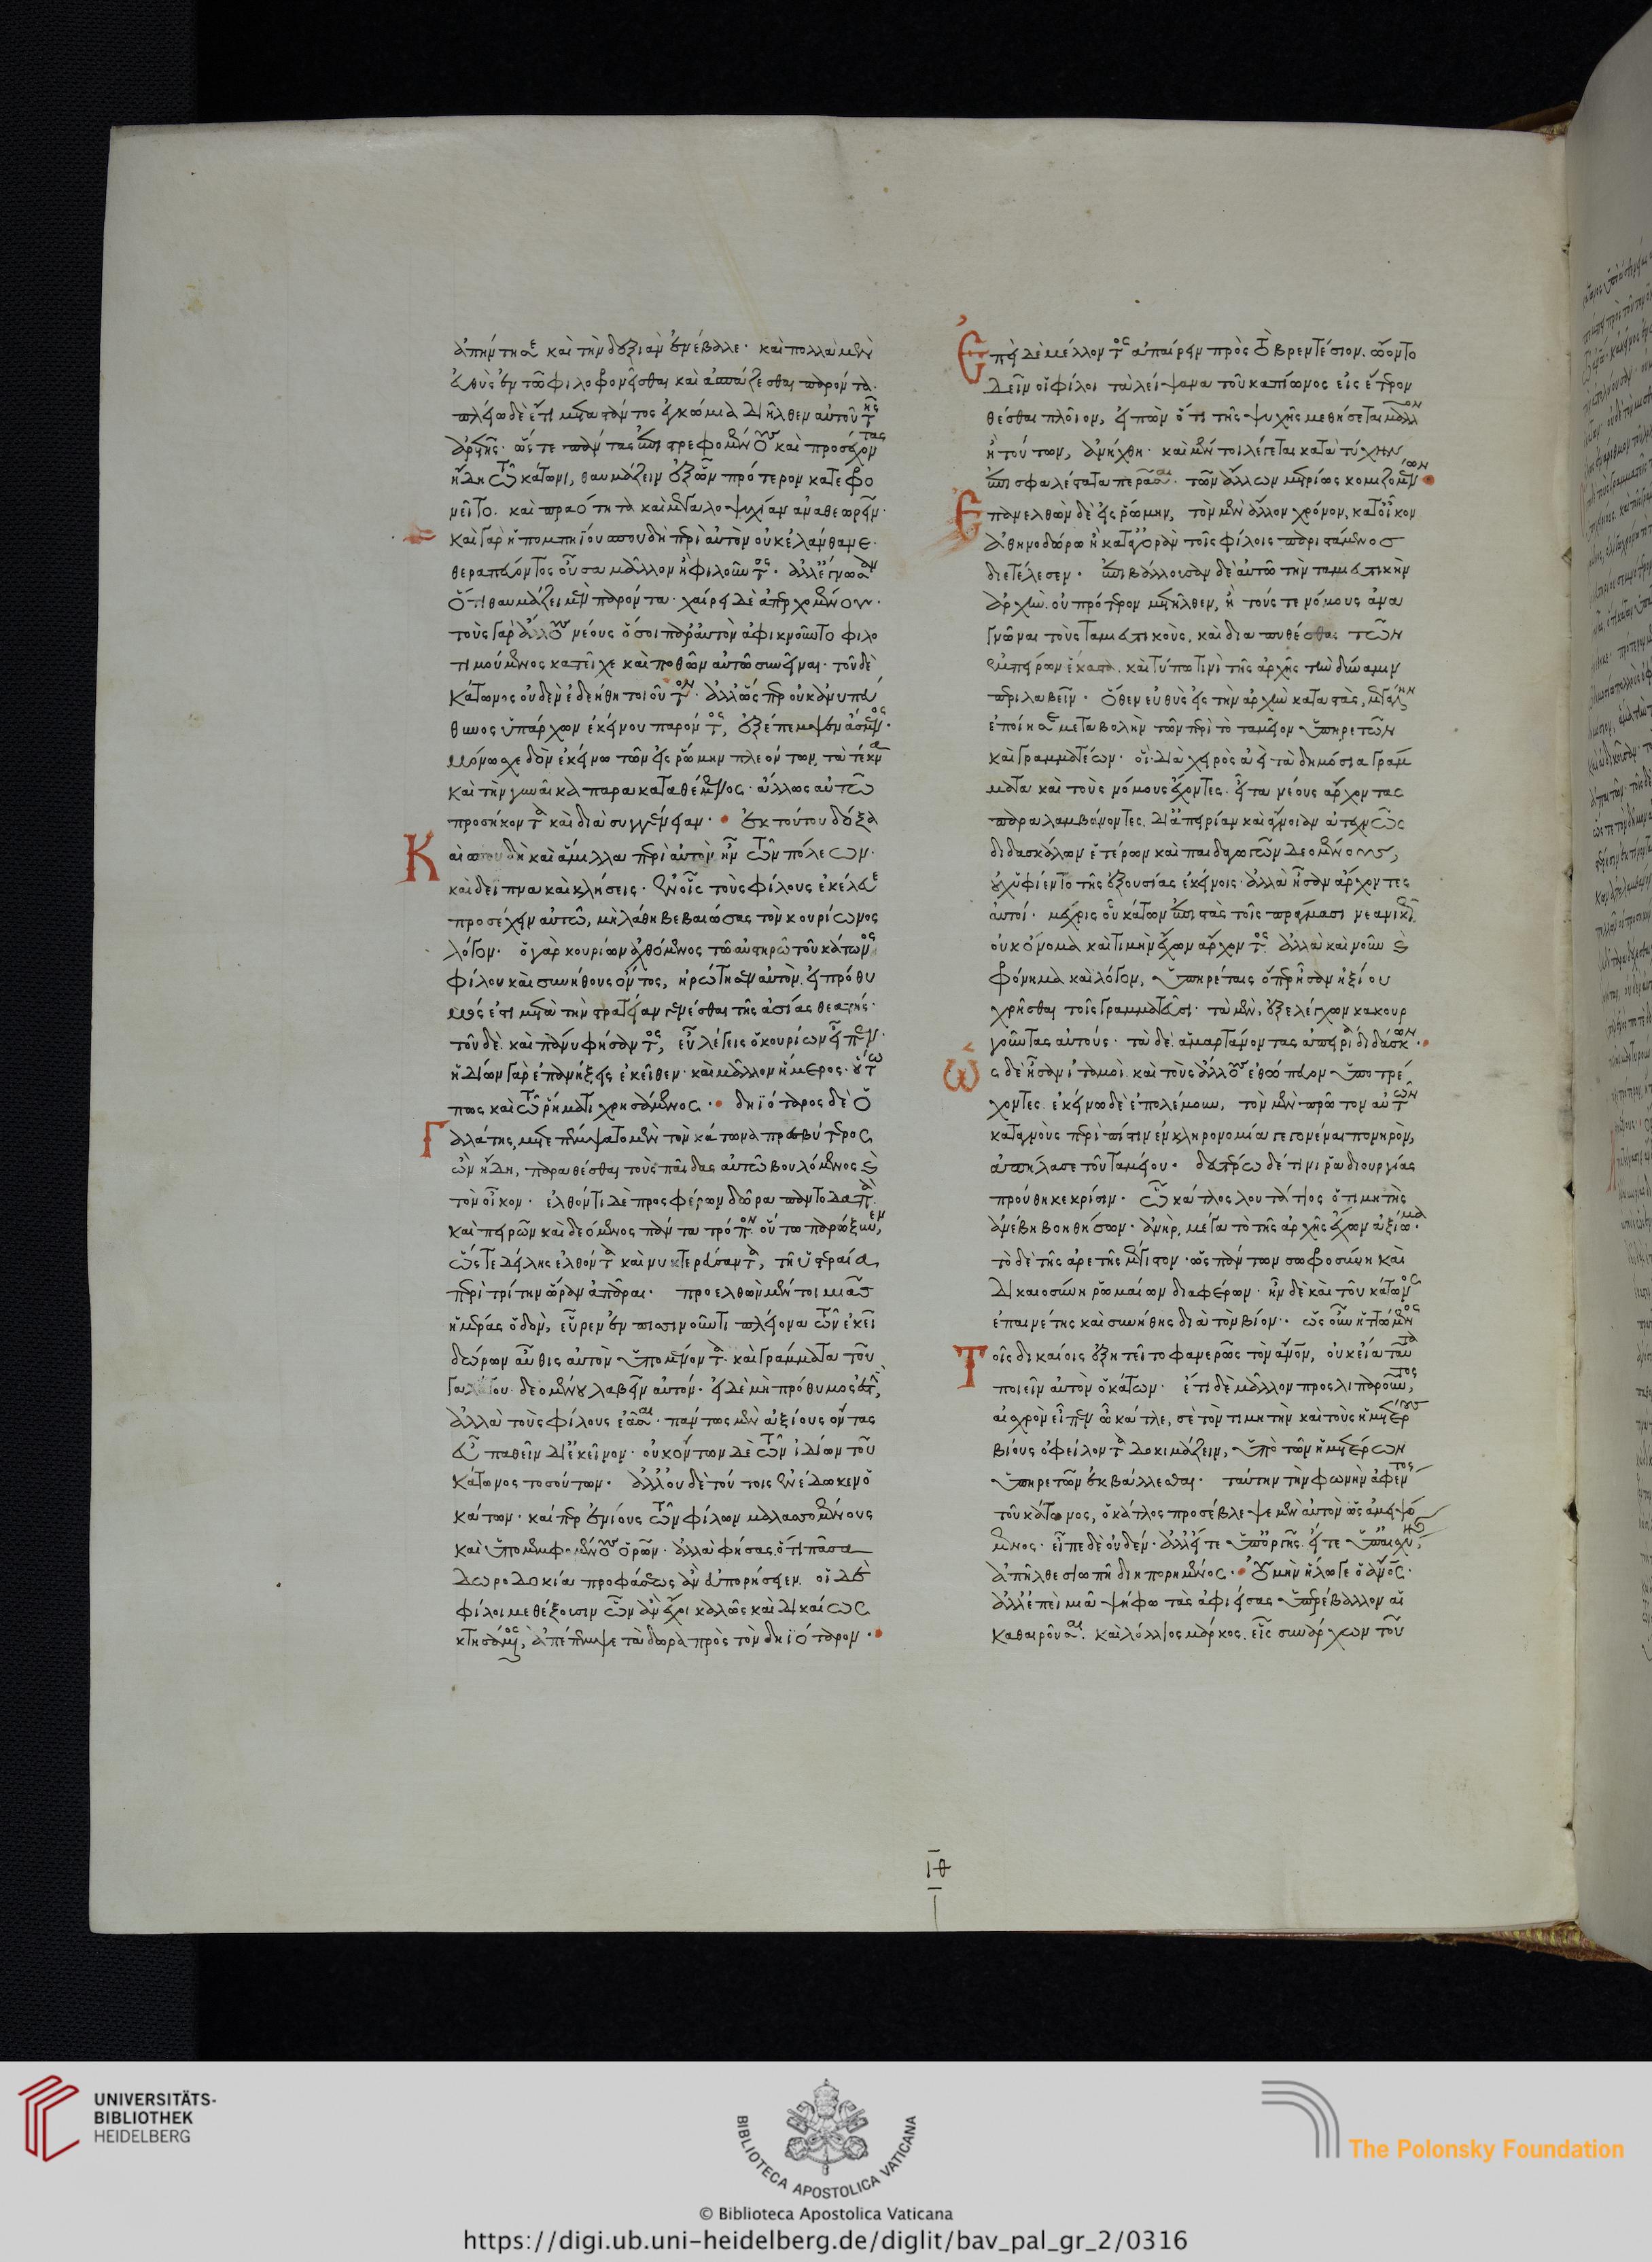 ἀπήντησε καὶ τὴν δεξιὰν ἐνέβαλε· καὶ πολλὰ μὲν
εὐθὺς ἐν τῷ φιλοφρονεῖσθαι καὶ ἀσπάζεσθαι παρόντα.
πλείω δὲ ἔτι μεταστάντος ἐγκώμια διῆλθεν αὐτοῦ τῆς
ἀρετῆς· ὥς τε πάντας ἐπιστρεφομένους καὶ προσέχοντας
ἤδη τῷ κάτωνι, θαυμάζειν ἐξ ὧν πρότερον κατεφρο
νεῖτο. καὶ πραότητα καὶ μεγαλοψυχίαν ἀναθεωρεῖν·
καὶ γὰρ ἡ πομπηΐου σπουδὴ περὶ αὐτὸν οὐκ ἐλάνθανε·
θεραπεύοντος οὖσα μᾶλλον ἢ φιλοῦντος· ἀλλ' ἔγνωσαν
ὅτι θαυμάζει μὲν παρόντα· χαίρει δὲ ἀπερχομένου·
τοὺς γὰρ ἄλλους νέους ὅσοι παρ' αὐτὸν ἀφικνοῦντο φιλο
τιμούμενος κατεῖχε καὶ ποθῶν αὐτῷ συνεῖναι· τοῦ δὲ
κάτωνος οὐδὲν ἐδεήθη τοιοῦτον· ἀλλ' ὥσπερ οὐκ ἀνυπεύ
θυνος ὑπάρχων ἐκείνου παρόντος, ἐξέπεμψεν ἄσμενος·
μόνῳ σχεδὸν ἐκείνῳ τῶν εἰς ῥώμην πλεόντων, τὰ τέκνα
καὶ τὴν γυναῖκα παρακαταθέμενος· ἄλλως αὐτῷ
προσήκοντα καὶ διὰ συγγένειαν· ἐκ τούτου δόξα
Καὶ σπουδὴ καὶ ἅμιλλα περὶ αὐτὸν ἦν τῶν πόλεων·
καὶ δεῖπνα καὶ κλήσεις· ἐν οἷς τοὺς φίλους ἐκέλευε
προσέχειν αὐτῷ, μὴ λάθῃ βεβαιώσας τὸν κουρίωνος
λόγον· ὁ γὰρ κουρίων ἀχθόμενος τῷ αὐστηρῷ τοῦ κάτωνος
φίλου καὶ συνήθους ὄντος, ἠρώτησεν αὐτὸν. εἰ πρόθυ
μός ἐστι μετὰ τὴν στρατείαν γενέσθαι τῆς ἀσίας θεατής·
τοῦ δὲ καὶ πάνυ φήσαντος, εὖ λέγεις ὁ κουρίων εἶπεν·
ἡδίων γὰρ ἐπανήξεις ἐκεῖθεν· καὶ μᾶλλον ἥμερος· οὕτω
πως καὶ τῷ ῥήματι χρησάμενος· δηϊόταρος δὲ ὁ
Γαλάτης, μετεπέμψατο μὲν τὸν κάτωνα πρεσβύτερος
ὢν ἤδη, παραθέσθαι τοὺς παῖδας αὐτῷ βουλόμενος καὶ
τὸν οἶκον· ἐλθόντι δὲ προσφέρων δῶρα παντοδαπὰ·
καὶ πειρῶν καὶ δεόμενος πάντα τρόπον· οὕτω παρώξυνεν,
ὥστε δείλης ἐλθόντα καὶ νυκτερεύσαντα, τῇ ὑστεραίᾳ
περὶ τρίτην ὥραν ἀπᾶραι· προελθὼν μέντοι μιᾶς
ἡμέρας ὁδὸν, εὗρεν ἐν πισινοῦντι πλείονα τῶν ἐκεῖ
δώρων αὖθις αὐτὸν ὑπομένοντα· καὶ γράμματα τοῦ
γαλάτου· δεομένου λαβεῖν αὐτόν· εἰ δὲ μὴ πρόθυμος ἐστὶ,
ἀλλὰ τοὺς φίλους ἐᾶσαι· πάντως μὲν ἀξίους ὄντας
εὖ παθεῖν δι' ἐκεῖνον· οὐκ ὄντων δὲ τῶν ἰδίων τοῦ
κάτωνος τοσούτων· ἀλλ' οὐδὲ τούτοις ἐνέδωκεν ὁ
κάτων· καίπερ ἐνίους τῶν φίλων μαλασσομένους
καὶ ὑπομεμφομένους ὁρῶν· ἀλλὰ φήσας, ὅτι πᾶσα
δωροδοκία προφάσεως ἂν εὐπορήσειεν. οἱ δὲ
φίλοι μεθέξουσιν ὧν ἂν ἔχοι καλῶς καὶ δικαίως
κτησάμενος, ἀπέπεμψε τὰ δῶρα πρὸς τὸν δηϊόταρον·
Ἐπεὶ δὲ μέλλοντος ἀπαίρειν πρὸς τὸ βρεντέσιον. ᾤοντο
δεῖν οἱ φίλοι τὰ λείψανα τοῦ καιπίωνος εἰς ἕτερον
θέσθαι πλοῖον, εἰπὼν ὅτι τῆς ψυχῆς μεθήσεται μᾶλλον
ἢ τούτων, ἀνήχθη· καὶ μέντοι λέγεται κατὰ τύχην
ἐπισφαλέστατα περᾶσαι· τῶν ἄλλων μετρίως κομιζομένων
Ἐπανελθὼν δὲ εἰς ῥώμην, τὸν μὲν ἄλλον χρόνον, κατ' οἶκον
ἀθηνοδώρῳ ἢ κατ' ἀγορὰν τοῖς φίλοις παριστάμενος
διετέλεσεν· ἐπιβάλλουσαν δὲ αὐτῷ τὴν ταμιευτικὴν
ἀρχὴν. οὐ πρότερον μετῆλθεν, ἢ τούς τε νόμους ἀνα
γνῶναι τοὺς ταμιευτικοὺς, καὶ διαπυθέσθαι τῶν
ἐμπείρων ἕκαστα. καὶ τύπῳ τινὶ τῆς ἀρχῆς τὴν δύναμιν
περιλαβεῖν· ὅθεν εὐθὺς εἰς τὴν ἀρχὴν καταστὰς, μεγάλην
ἐποίησε μεταβολὴν τῶν περὶ τὸ ταμεῖον ὑπηρετῶν
καὶ γραμματέων· οἳ διὰ χειρὸς ἀεὶ τὰ δημόσια γράμ
ματα καὶ τοὺς νόμους ἔχοντες· εἶτα νέους ἄρχοντας
παραλαμβάνοντες, δι' ἀπειρίαν καὶ ἄγνοιαν ἀτεχνῶς
διδασκάλων ἑτέρων καὶ παιδαγωγῶν δεομένους,
οὐχ ὑφίεντο τῆς ἐξουσίας ἐκείνοις· ἀλλὰ ἦσαν ἄρχοντες
αὐτοί· μέχρις οὗ κάτων ἐπιστὰς τοῖς πράγμασι νεανικῶς
οὐκ ὄνομα καὶ τιμὴν ἔχων ἄρχοντος· ἀλλὰ καὶ νοῦν καὶ
φρόνημα καὶ λόγον, ὑπηρέταις ὅπερ ἦσαν ἠξίου
χρῆσθαι τοῖς γραμματεῦσι· τὰ μὲν, ἐξελέγχων κακουρ
γοῦντας αὐτούς· τὰ δὲ. ἁμαρτάνοντας ἀπειρίᾳ διδάσκων·
Ὡς δὲ ἦσαν ἰταμοὶ. καὶ τοὺς ἄλλους ἐθώπευον ὑποτρέ
χοντες. ἐκείνῳ δὲ ἐπολέμουν, τὸν μὲν πρῶτον αὐτῶν
καταγνοὺς περὶ πίστιν ἐν κληρονομίᾳ γεγονέναι πονηρὸν,
ἀπήλασε τοῦ ταμείου· δευτέρῳ δέ τινι ῥᾳδιουργίας
προύθηκε κρίσιν· ᾧ κάτλος λουτάτιος ὁ τιμητὴς
ἀνέβη βοηθήσων· ἀνὴρ, μέγα τὸ τῆς ἀρχῆς ἔχων ἀξίωμα·
τὸ δὲ τῆς ἀρετῆς μέγιστον· ὡς πάντων σωφροσύνῃ καὶ
δικαιοσύνῃ ῥωμαίων διαφέρων· ἦν δὲ καὶ τοῦ κάτωνος
ἐπαινέτης καὶ συνήθης διὰ τὸν βίον· ὡς οὖν ἡττώμενος
Τοῖς δικαίοις ἐξῃτεῖτο φανερῶς τὸν ἄνθρωπον, οὐκ εἴα ταῦτα
ποιεῖν αὐτὸν ὁ κάτων· ἔτι δὲ μᾶλλον προσλιπαροῦντος,
αἰσχρὸν εἶπεν ὦ κάτλε, σὲ τὸν τιμητὴν καὶ τοὺς ἡμετέρους
βίους ὀφείλοντα δοκιμάζειν, ὑπὸ τῶν ἡμετέρων
ὑπηρετῶν ἐκβάλλεσθαι· ταύτην τὴν φωνὴν ἀφέντος
τοῦ κάτωνος, ὁ κάτλος προσέβλεψε μὲν αὐτὸν ὡς ἀμειψό
μενος· εἶπε δὲ οὐδέν· ἀλλ' εἴτε ὑπ' ὀργῆς. εἴτε ὑπ' αἰσχύνης,
ἀπῆλθε σιωπῇ διηπορημένος· οὐ μὴν ἥλω γε ὁ ἄνθρωπος·
ἀλλ' ἐπεὶ μιᾷ ψήφῳ τὰς ἀφιείσας ὑπερέβαλλον αἱ
καθαιροῦσαι· καὶ λόλλιος μάρκος. εἷς συνάρχων τοῦ
ιθ
UNIVERSITÄTS-
BIBLIOTHEK
HEIDELBERG
BIBLIOTECA APOSTOLICA VATICANA
The Polonsky Foundation
© Biblioteca Apostolica Vaticana
https://digi.ub.uni-heidelberg.de/diglit/bav_pal_gr_2/0316